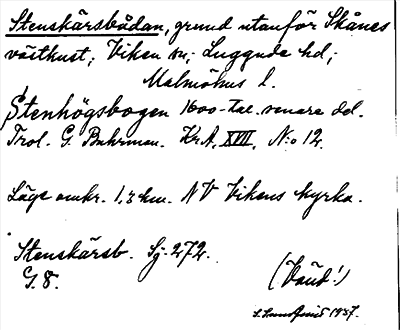 Stenskärsbådan, grund utanför Skånes
västkust; Viken sn; Luggude hd;
Malmöhus l.
Stenhögsbogen 1600-tal. senare del.
Trol. G. Buhrman. Kr.A. XVII, N:o 12.
Läge omkr. 1,3 km. NV Vikens kyrka.
Stenskärsb. Sj. 272.
G. 8.
S. 1937.